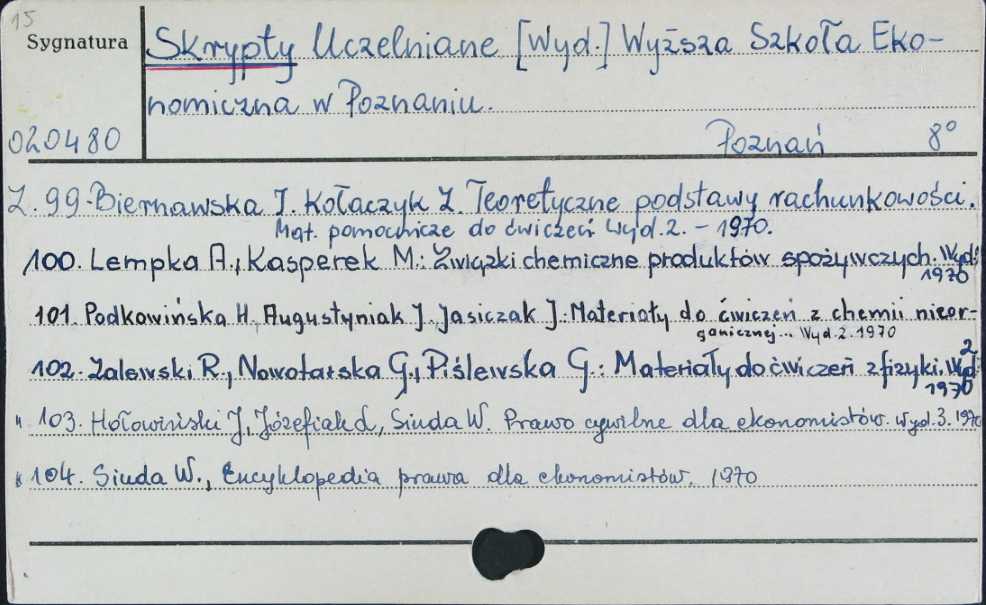 15
Sygnatura
Skrypty Uczelniane [Wyd.] Wyższa Szkoła Eko-
nomiczna w Poznaniu.
020480
Poznań 8°
Z. 99. Biernawska J. Kołaczyk Z. Teoretyczne podstawy rachunkowości.
Mat. pomocnicze do ćwiczeń Wyd. 2. - 1970.
100. Lempka A., Kasperek M.: Związki chemiczne produktów spożywczych. Wyd.
1970
101. Podkowińska H., Augustyniak J. Jasiczak J.: Materiały do ćwiczeń z chemii nieor-
ganicznej... Wyd. 2. 1970
102. Zalewski R., Nowotarska G., Piślewska G.: Materiały do ćwiczeń z fizyki. Wyd. 2
1970
" 103. Hołowiński J, Józefiak d, Siuda W. Prawo cywilne dla ekonomistów. Wyd. 3. 1970
" 104. Siuda W., Encyklopedia prawa dla ekonomistów. 1970